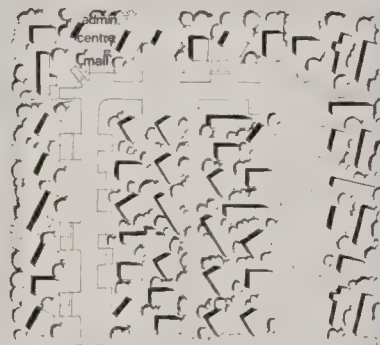 admin.
centre
mall